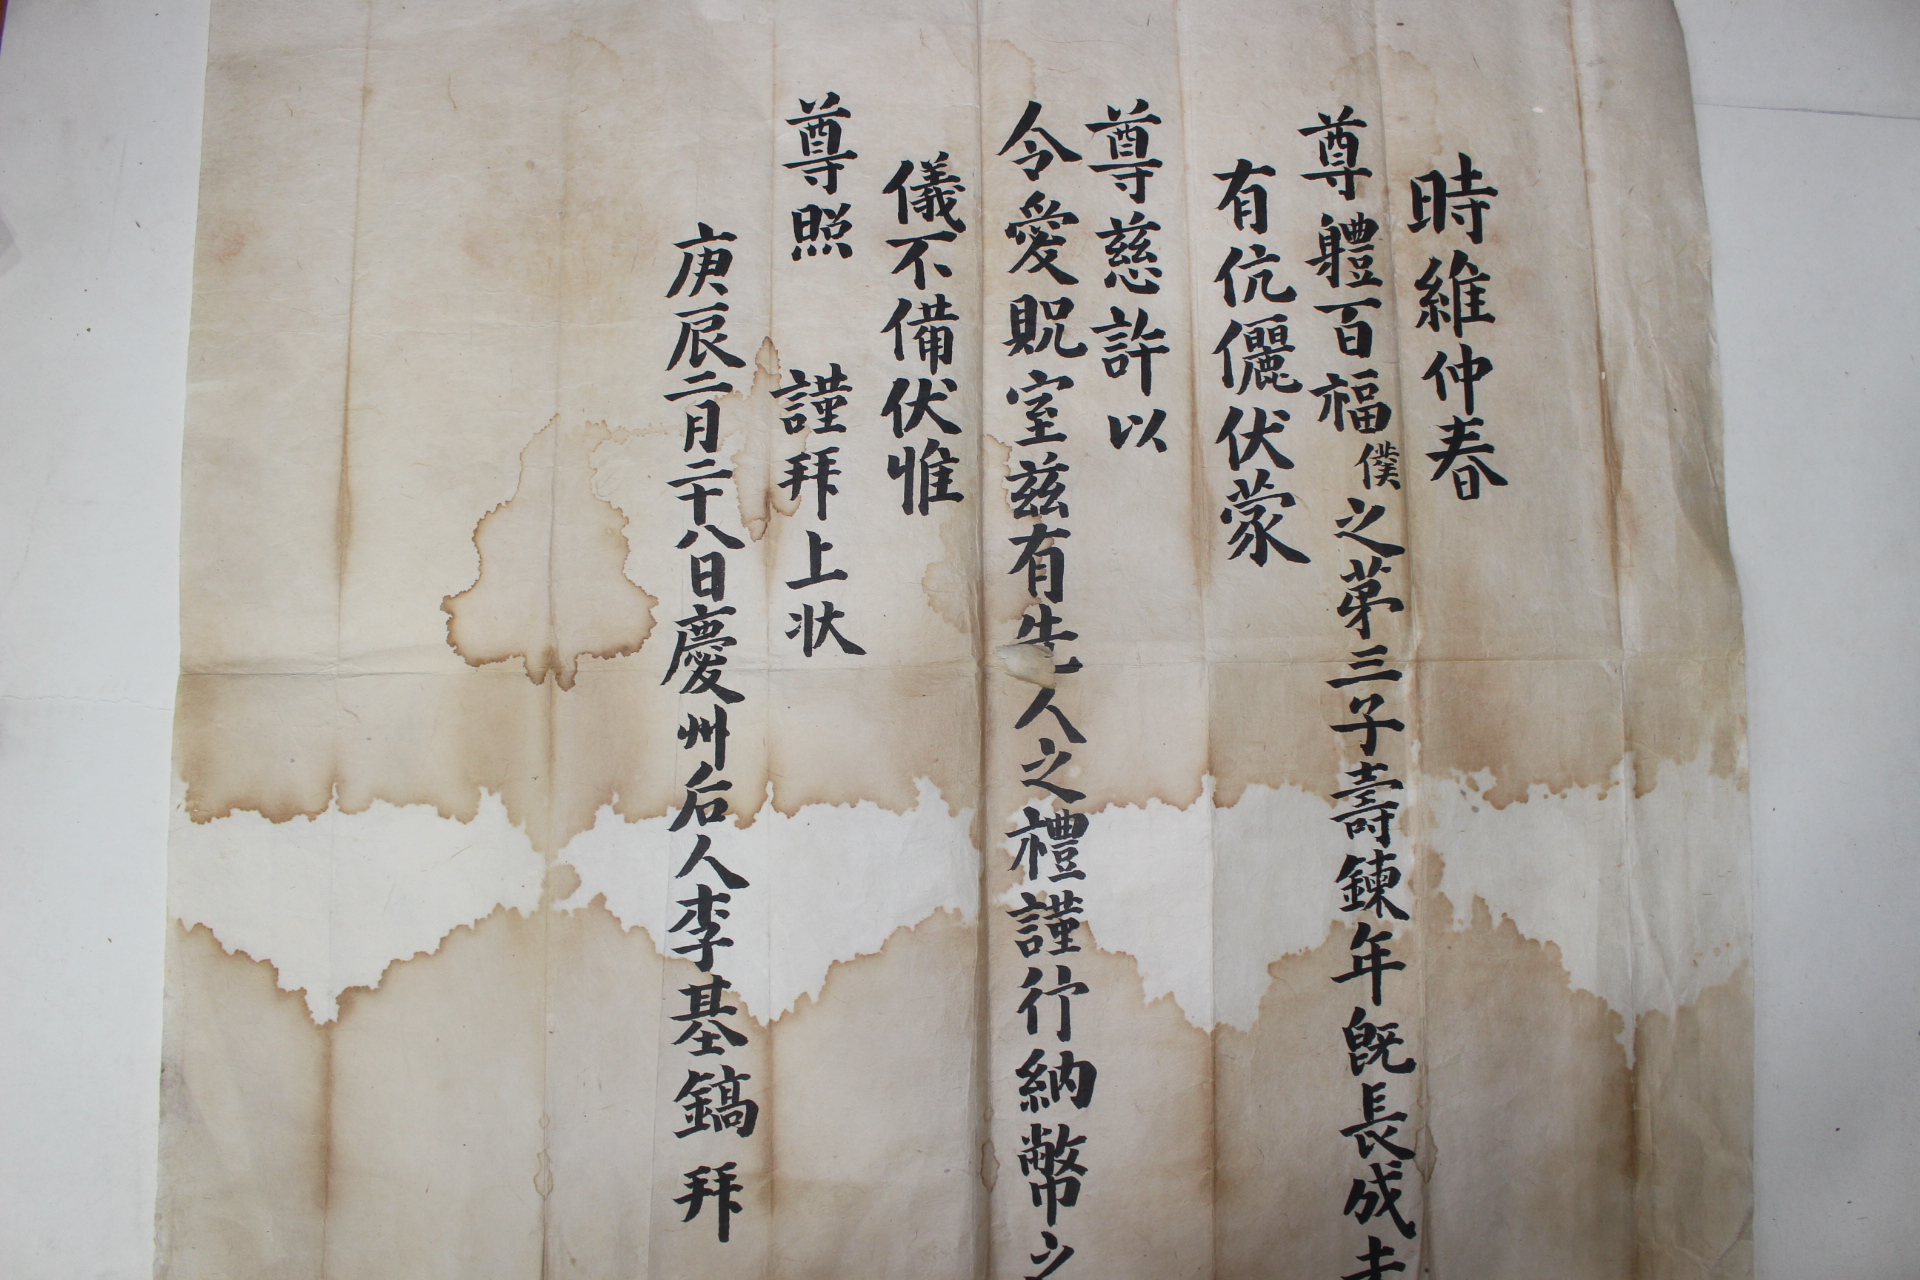 時維仲春
尊體百福僕之第三子壽鍊年旣長成未
有伉儷伏蒙
尊慈許以
令愛貺室玆有先人之禮謹行納幣之
儀不備伏惟
尊照 謹拜上狀
庚辰二月二十八日慶州后人李基鎬 拜